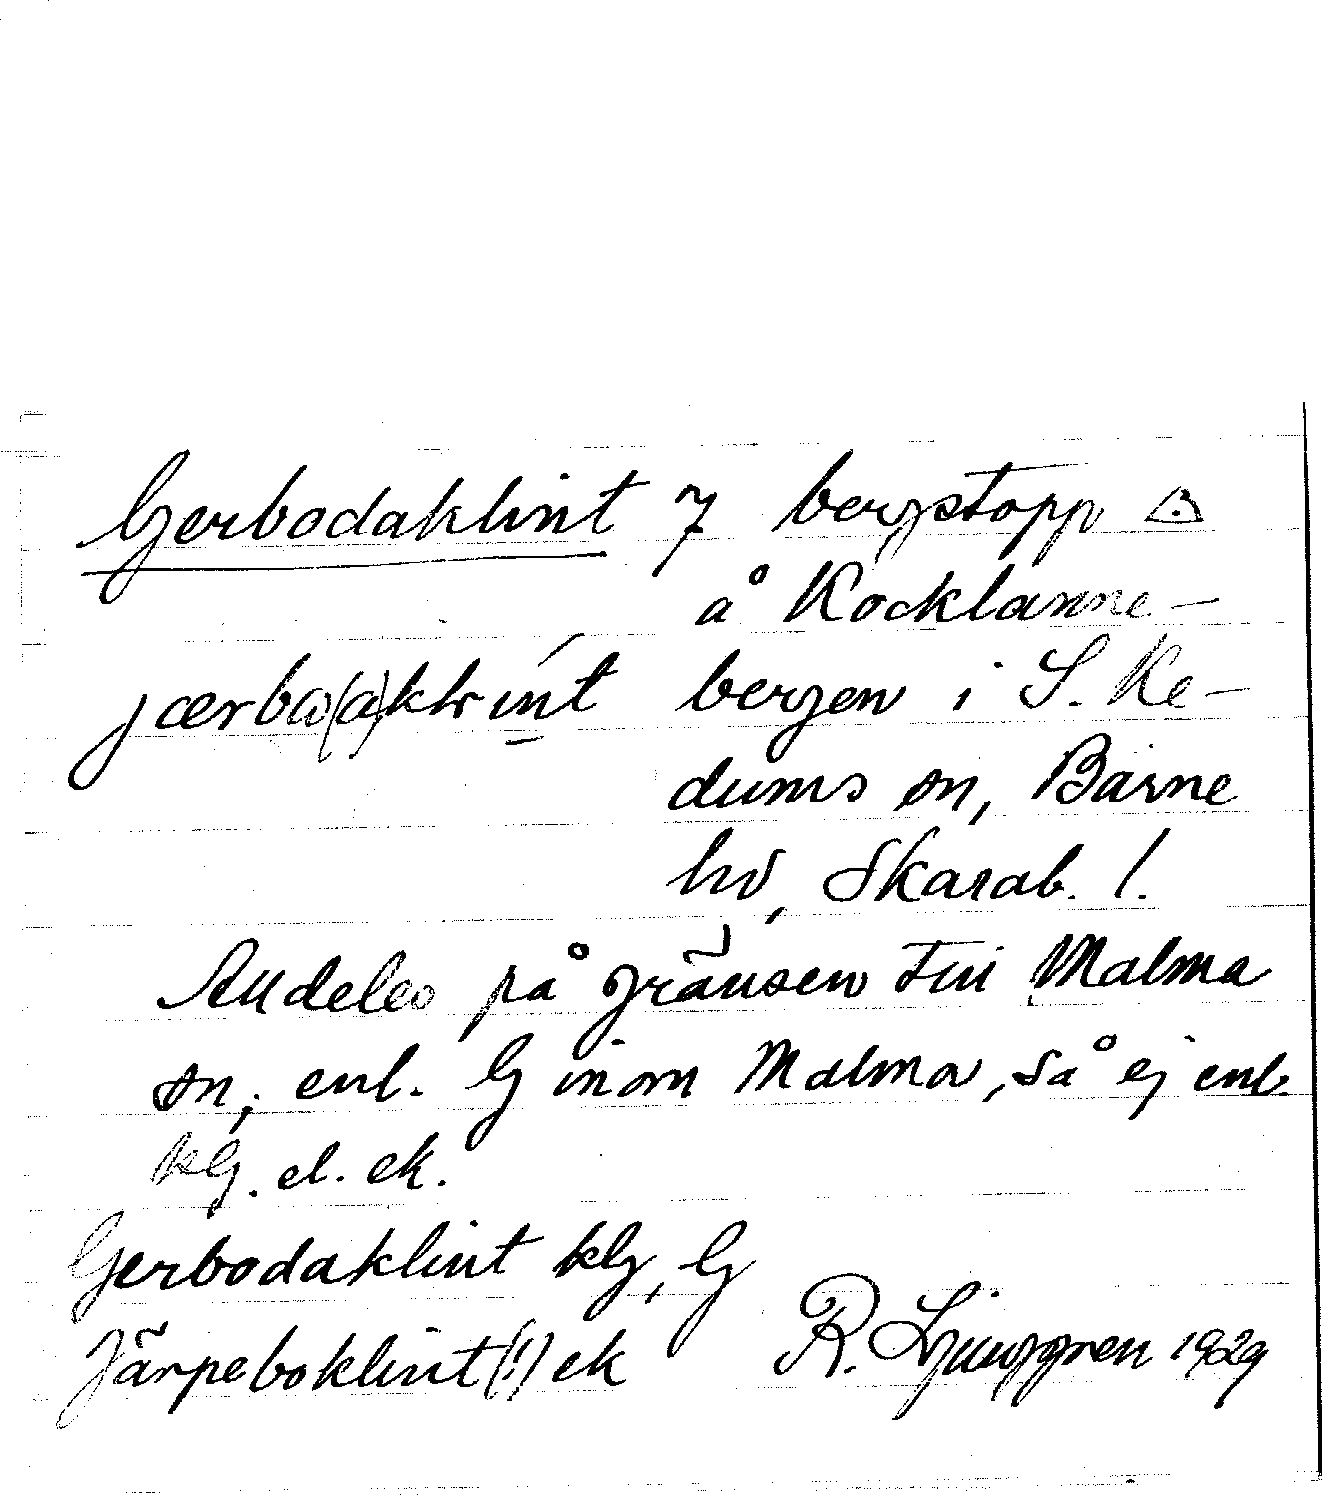 Gerbodaklint 7 bergstopp
å Kocklanne-
bergen i S. Ke-
dums sn, Barne
hd, Skarab. l.
Alldeles på gränsen till Malma
sn, enl. G inom Malma, så ej enl.
klg. el. ek.
Gerbodaklint klg, G
Järpeboklint (!) ek
R. Ljunggren 1929